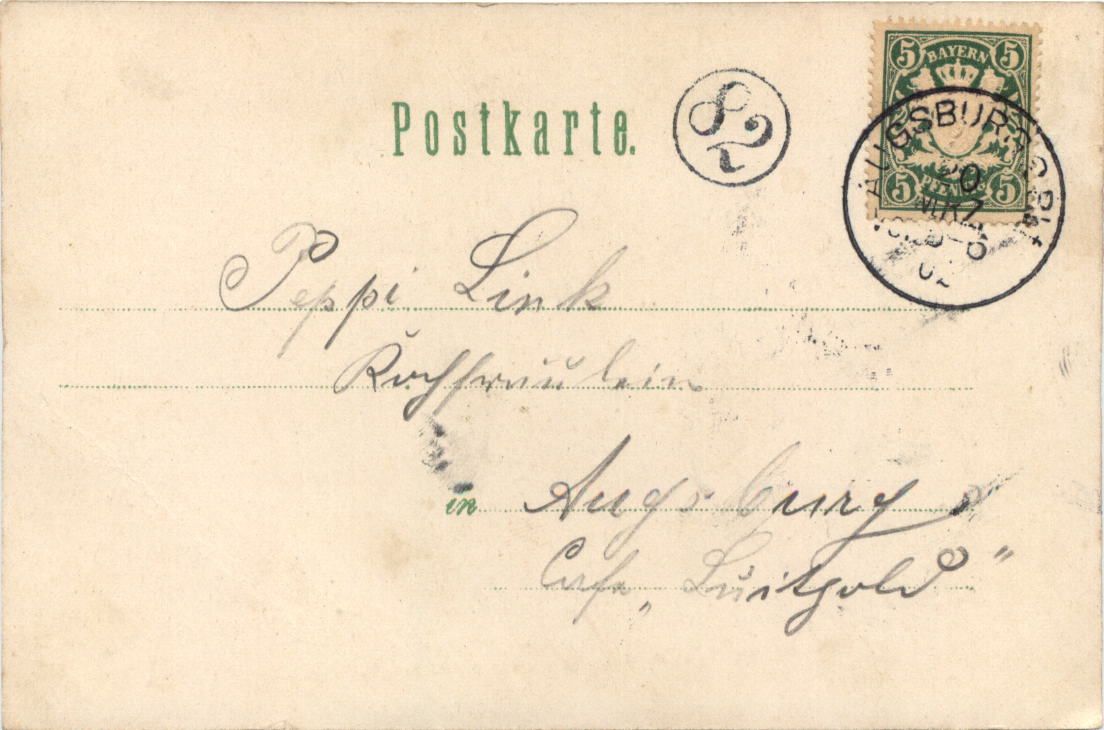 Postkarte.
82
5 BAYERN 5
5 PFENNIG 5
AUGSBURG
20
MRZ
02
Peppi Link
Kochfräulein
in Augsburg
Cafe „Luitpold"